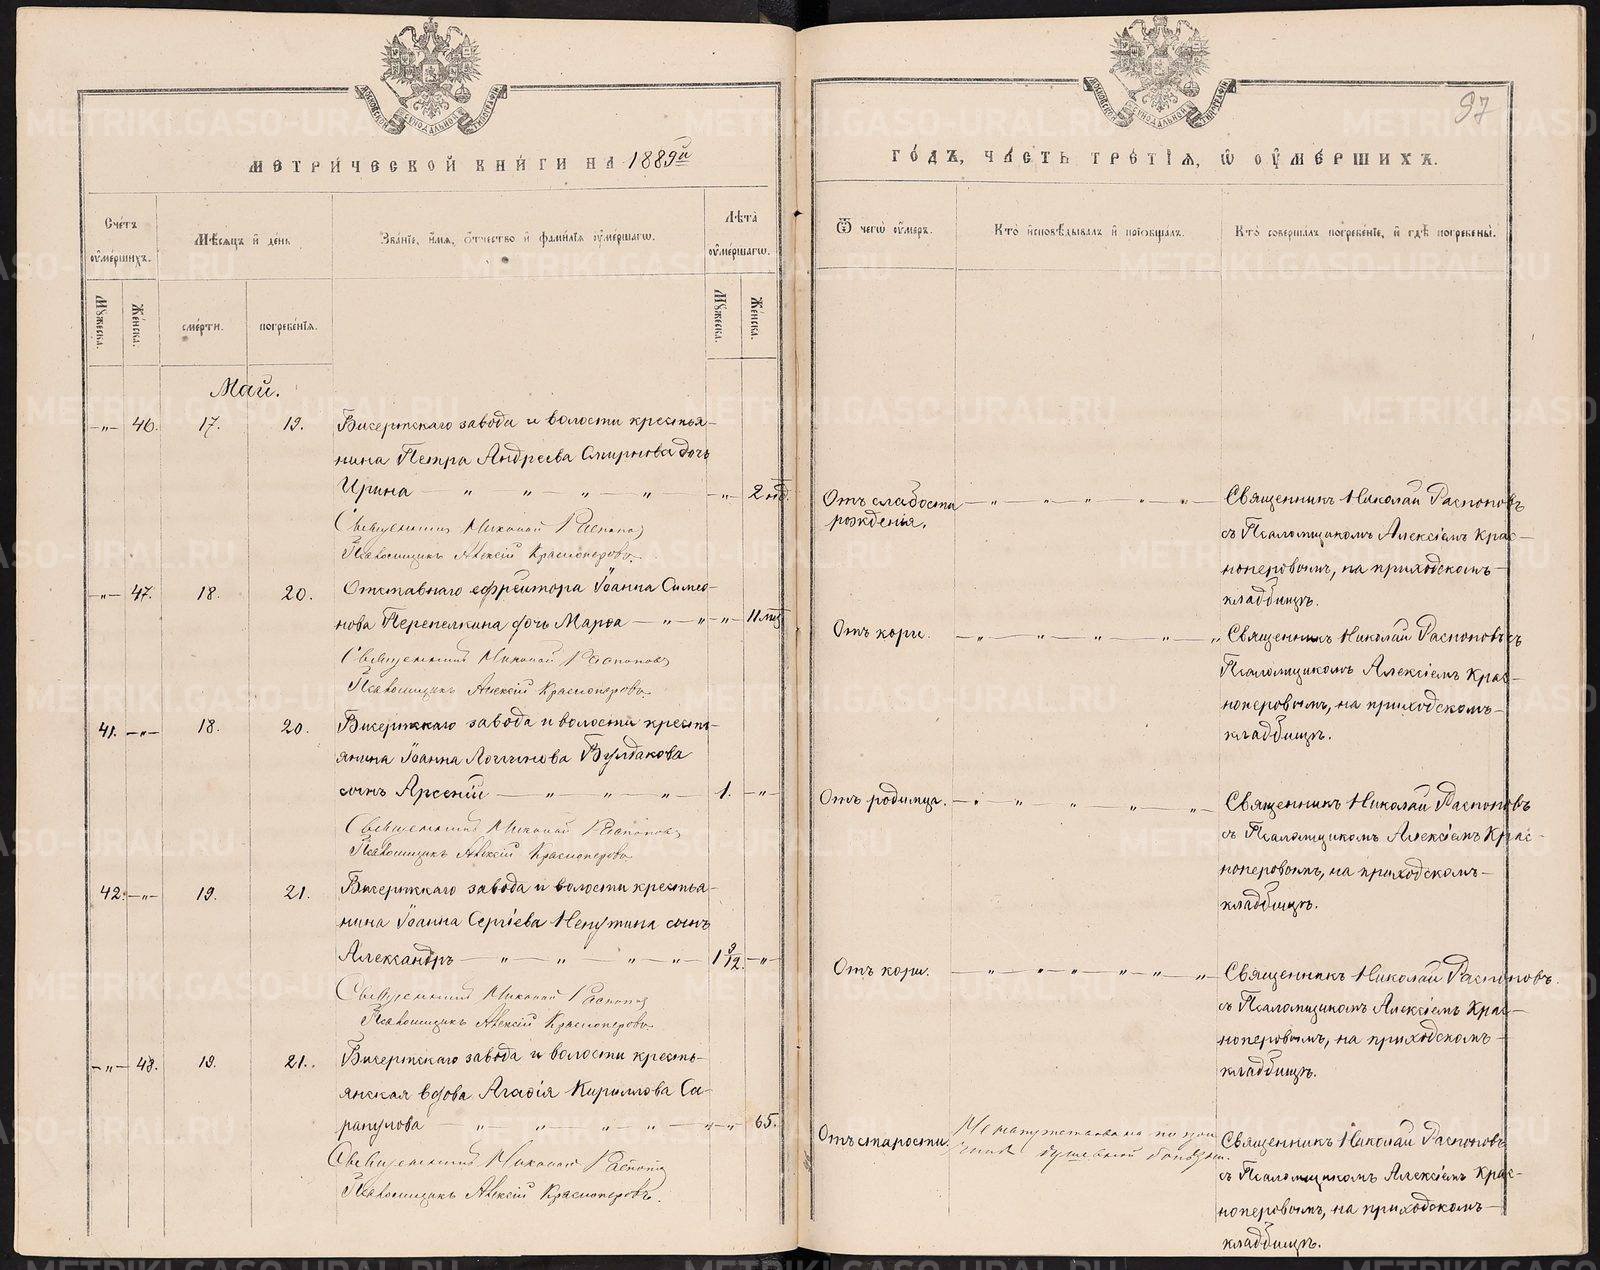 97
МЕТРИ́ЧЕСКОЙ КНИ́ГИ НА 1889й
ГО́ДЪ, ЧА́СТЬ ТРЕ́ТІЯ, Ѡ ОУ҆МЕ́РШИХЪ.
Сче́тъ оу҆ме́ршихъ.
Мѣ́сяцъ и҆ де́нь
Зва́ніе, и҆́мя, ѻ҆́тчество и҆ фами́лія оу҆ме́ршагѡ.
Лѣ́та оу҆ме́ршагѡ.
Ѿ чегѡ̀ оу҆́меръ.
Кто̀ и҆сповѣ́дывалъ и҆ прїѡбща́лъ.
Кто̀ соверша́лъ погребе́ніе, и҆ гдѣ̀ погребены̀.
Мꙋ́жеска.
Же́нска.
сме́рти.
погребе́нія.
Мꙋ́жеска.
Же́нска.
Май.
—„— 46. 17. 19. Бисертскаго завода и волости крестья-
нина Петра Андреева Смирнова дочь
Ирина — „ — „ — „ — „ — — „ — 2 нд.
Священникъ Николай Распопов
Псаломщикъ Алексій Красноперовъ
Отъ слабости
рожденія.
Священникъ Николай Распоповъ
съ Псаломщикомъ Алексіемъ Крас-
ноперовымъ, на приходскомъ
кладбищѣ.
—„— 47. 18. 20. Отставнаго ефрейтора Іоанна Симео-
нова Перепелкина дочь Марѳа — „ — „ — „ — 11 мц
Священникъ Николай Распоповъ
Псаломщикъ Алексій Красноперовъ
Отъ кори.
Священникъ Николай Распоповъ съ
Псаломщикомъ Алексіемъ Крас-
ноперовымъ, на приходскомъ
кладбищѣ.
41. —„— 18. 20. Бисертскаго завода и волости кресть-
янина Іоанна Логгинова Булдакова
сынъ Арсеній — „ — „ — „ — 1. —„—
Священникъ Николай Распоповъ
Псаломщикъ Алексій Красноперовъ
Отъ родимца.
Священникъ Николай Распоповъ
съ Псаломщикомъ Алексіемъ Крас-
ноперовымъ, на приходскомъ
кладбищѣ.
42. —„— 19. 21. Бисертскаго завода и волости крестья-
нина Іоанна Сергіева сынъ
Александръ — „ — „ — „ — „ — 1 9/12. —„—
Священникъ Николай Распопов
Псаломщикъ Алексій Красноперовъ
Отъ кори.
Священникъ Николай Распоповъ
съ Псаломщикомъ Алексіемъ Крас-
ноперовымъ, на приходскомъ
кладбищѣ.
—„— 48. 19. 21. Бисертскаго завода и волости кресть-
янская вдова Агаѳія Кириллова Са-
рапулова — „ — „ — „ — „ — „ — 65.
Священникъ Николай Распопов
Псаломщикъ Алексій Красноперовъ.
Отъ старости.
Не напутствована по при-
чинѣ
Священникъ Николай Распоповъ
съ Псаломщикомъ Алексіемъ Крас-
ноперовымъ, на приходскомъ
кладбищѣ.
METRIKI.GASO-URAL.RU